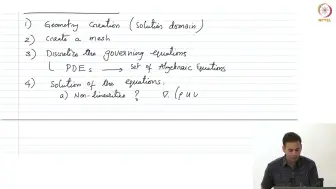 1) Geometry Creation (Solution domain)
2) Create a mesh
3) Discretize the governing equations
└ PDEs ⟶ Set of Algebraic Equations
4) Solution of the equations.
a) Non-linearities ? ∇. (ρ u u
NPTEL